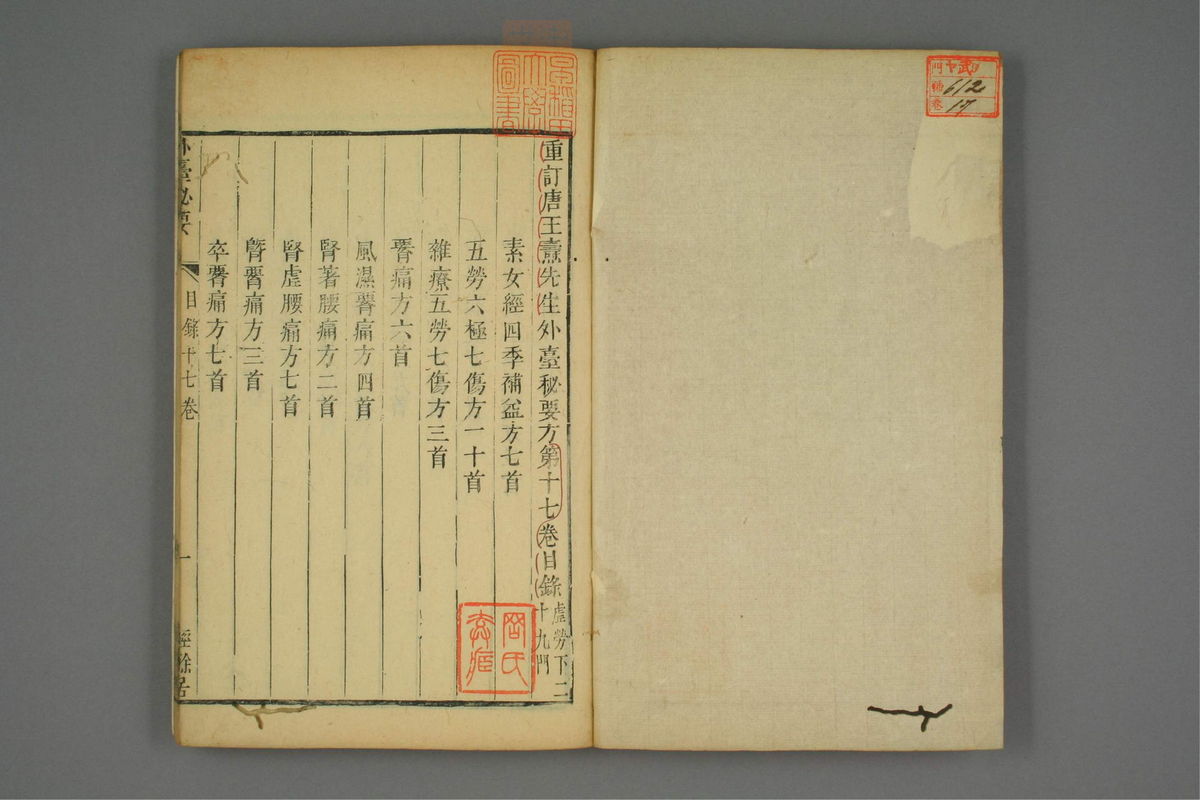 門
號 612
卷 17
早稻田大學圖書
重訂唐王燾先生外臺秘要方第十七卷目錄 虛勞下二十九門
素女經四季補益方七首
五勞六極七傷方一十首
雜療五勞七傷方三首
腰痛方六首
風濕腰痛方四首
腎著腰痛方二首
腎虛腰痛方七首
腰痛方三首
卒腰痛方七首
外臺秘要 目錄十七卷 一 經餘居